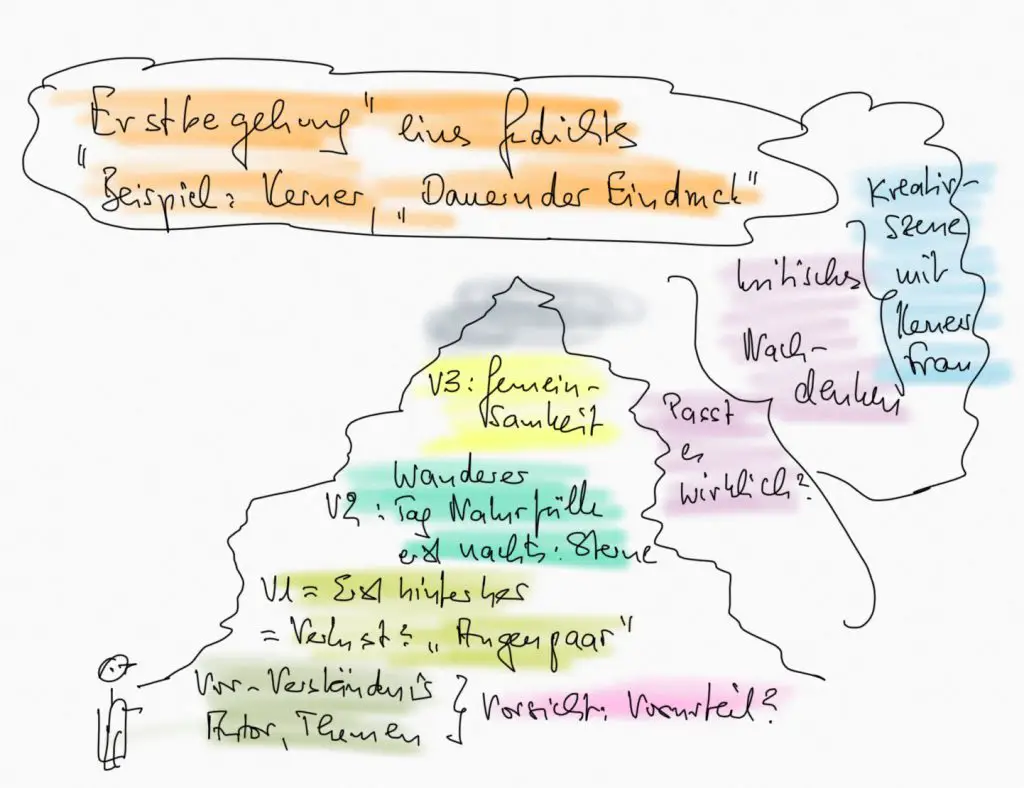 "Erstbegehung" eines Gedichts
Beispiel: Kerner, "Dauernder Eindruck"
Kreativ-
szene
mit
Kerners
Frau
kritisches
Nach-
denken
Passt
es
wirklich?
V3: Gemein-
samkeit
Wanderer
V2: Tag Naturfülle
erst nachts: Sterne
V1 = Erst hinterher
= Verlust? „Augenpaar"
Vor-Verständnis
Autor, Themen
Vorsicht: Vorurteil?